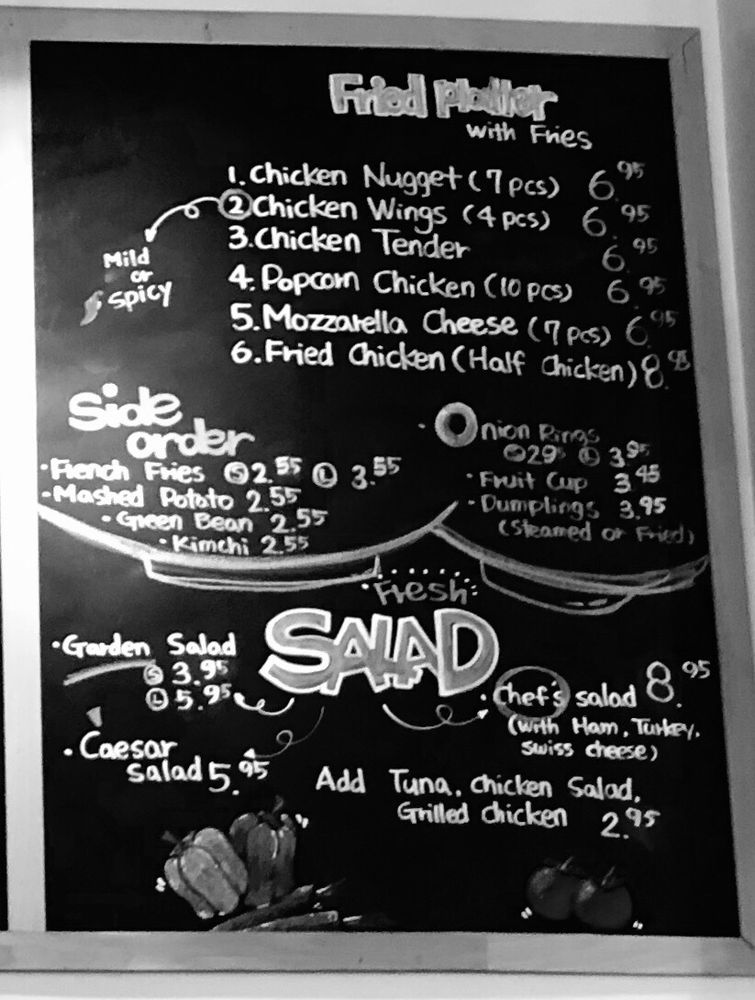 Fried Platter
with Fries
1. Chicken Nugget (7 pcs) 6.95
2 Chicken Wings (4 pcs) 6.95
Mild
or
Spicy
3. Chicken Tender 6.95
4. Popcorn Chicken (10 pcs) 6.95
5. Mozzarella Cheese (7 pcs) 6.95
6. Fried Chicken (Half Chicken) 8.95
Side
order
• French Fries S 2.55 L 3.55
• Mashed Potato 2.55
• Green Bean 2.55
• Kimchi 2.55
• Onion Rings
S 2.95 L 3.95
• Fruit Cup 3.45
• Dumplings 3.95
(Steamed or Fried)
Fresh
SALAD
• Garden Salad
S 3.95
L 5.95
• Caesar
Salad 5.95
• Chef's salad 8.95
(With Ham, Turkey,
Swiss cheese)
Add Tuna, Chicken Salad,
Grilled Chicken 2.95